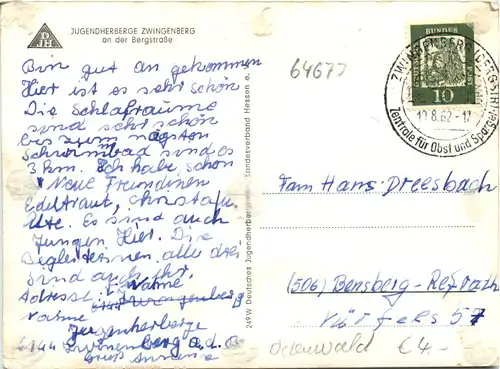 JUGENDHERBERGE ZWINGENBERG
an der Bergstraße
Bin gut an gekommen
Hier ist es sehr schön
Die Schlafräume
sind sehr schön
bis zum nägsten
Schwimbad sind es
3 km. Ich habe schon
Neue Freundinen
Edeltraut, christa,
Ute. Es sind auch
Jungen Hier. Die
Begleiterinen alle drei
sind auch
Adresse: Name
Name
Jugenherberge
6144 Zwingenberg a.d.B
Gruß
249 W Deutsches Jugendherbergswerk Landesverband Hessen e.
64673
DEUTSCHE BUNDESPOST
10
ZWINGENBERG (BERGSTR
10.8.62-17
Zentrale für Obst und Spargel
Fam Hans Dreesbach
(506) Bensberg-Refrath
57
Odenwald €4.-